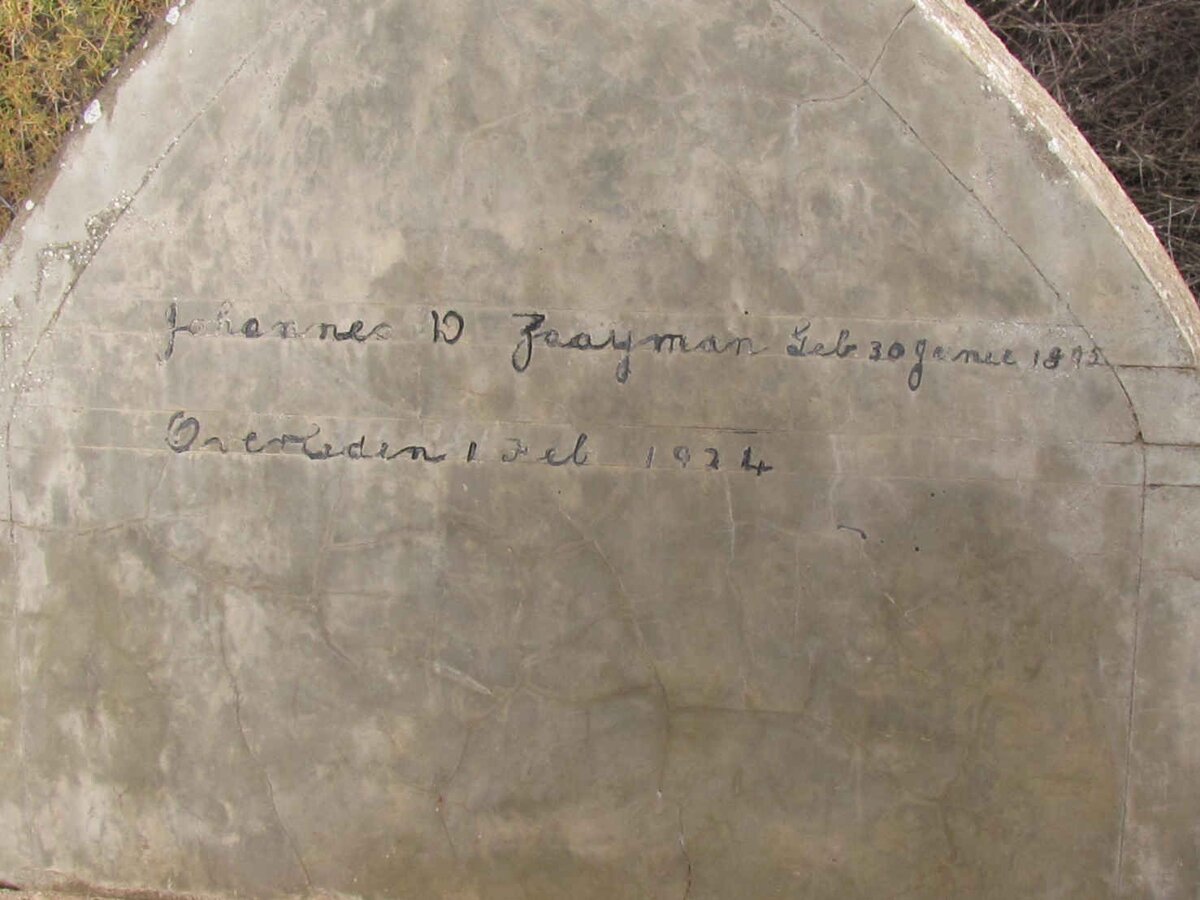 Johannes D Zaayman Geb 30 Junee 1892
Overleden 1 Feb 1924